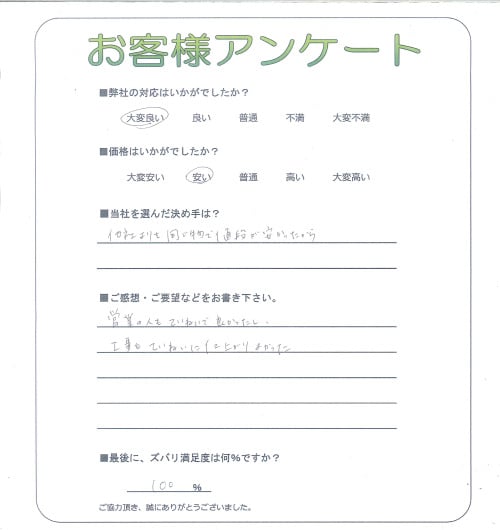 お客様アンケート
■弊社の対応はいかがでしたか？
大変良い 良い 普通 不満 大変不満
■価格はいかがでしたか？
大変安い 安い 普通 高い 大変高い
■当社を選んだ決め手は？
他社よりも同じ物で値段が安かったから
■ご感想・ご要望などをお書き下さい。
営業の人もていねいで良かったし、
工事もていねいに仕上がりよかった
■最後に、ズバリ満足度は何%ですか？
100 %
ご協力頂き、誠にありがとうございました。